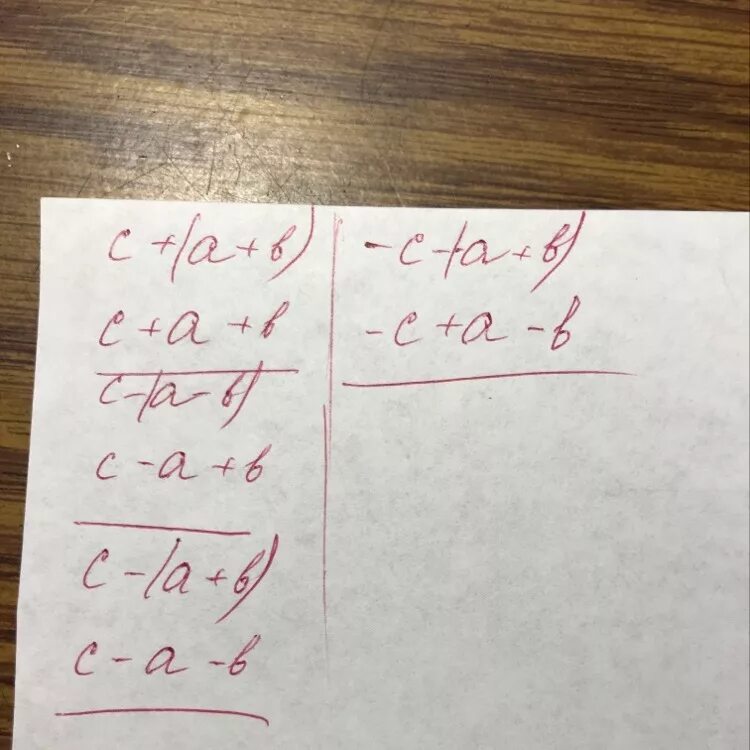 c+(a+b)
c+a+b
c-(a-b)
c-a+b
c-(a+b)
c-a-b
-c-(a+b)
-c+a-b